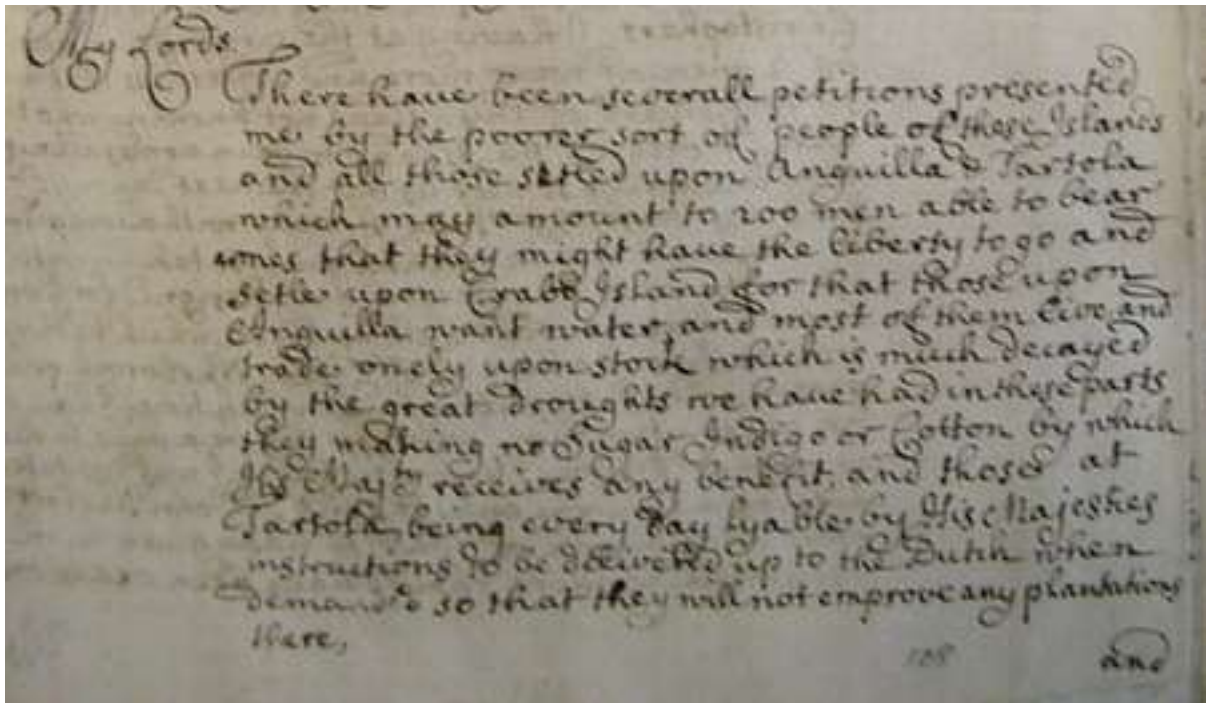 My Lords
There have been severall petitions presented
me by the poorer sort of people of these Islands
and all those setled upon Anguilla & Tartola
which may amount to 200 men able to bear
armes that they might have the liberty to go and
setle upon Crabb Island for that those upon
Anguilla want water, and most of them live and
trade onely upon stock which is much decayed
by the great droughts we have had in these parts
they making no Sugar Indigo or Cotton by which
His Majtie receives any benefit, and those at
Tartola, being every day lyable by His Majesties
instructions to be delivered up to the Dutch when
demanded so that they will not emprove any plantations
there,
108
and